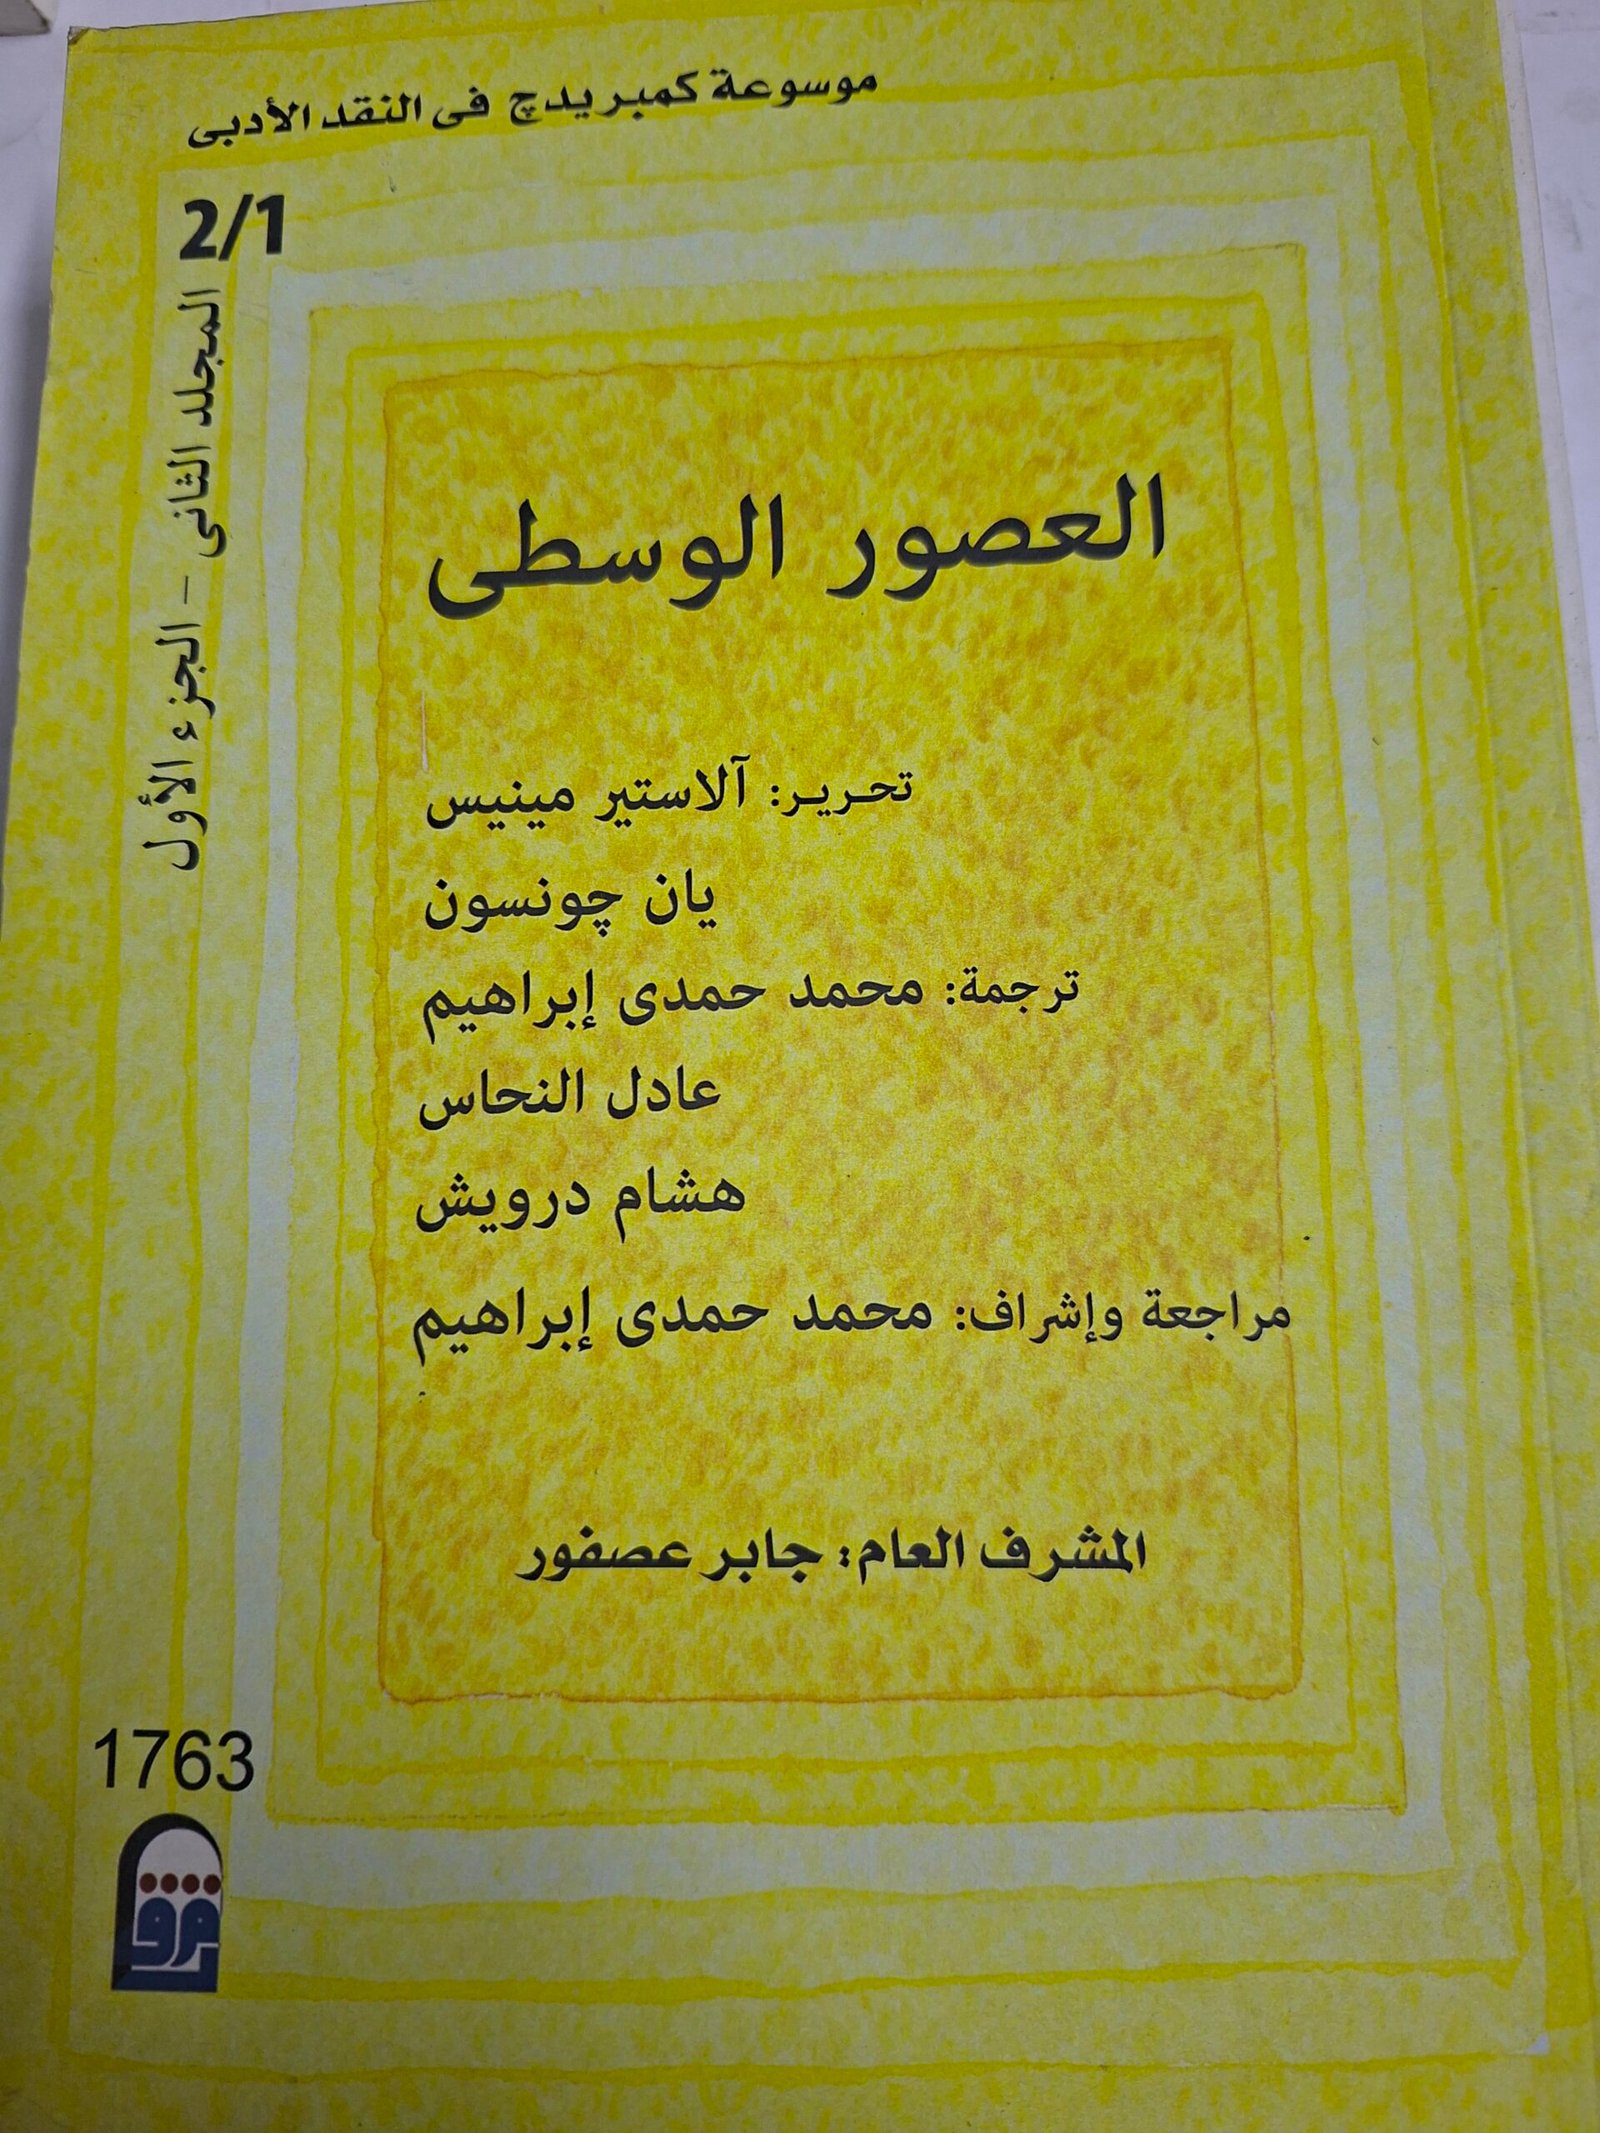 موسوعة كمبريدچ فى النقد الأدبى
2/1
المجلد الثانى – الجزء الأول
العصور الوسطى
تحرير: آلاستير مينيس
يان چونسون
ترجمة: محمد حمدى إبراهيم
عادل النحاس
هشام درويش
مراجعة وإشراف: محمد حمدى إبراهيم
المشرف العام: جابر عصفور
1763